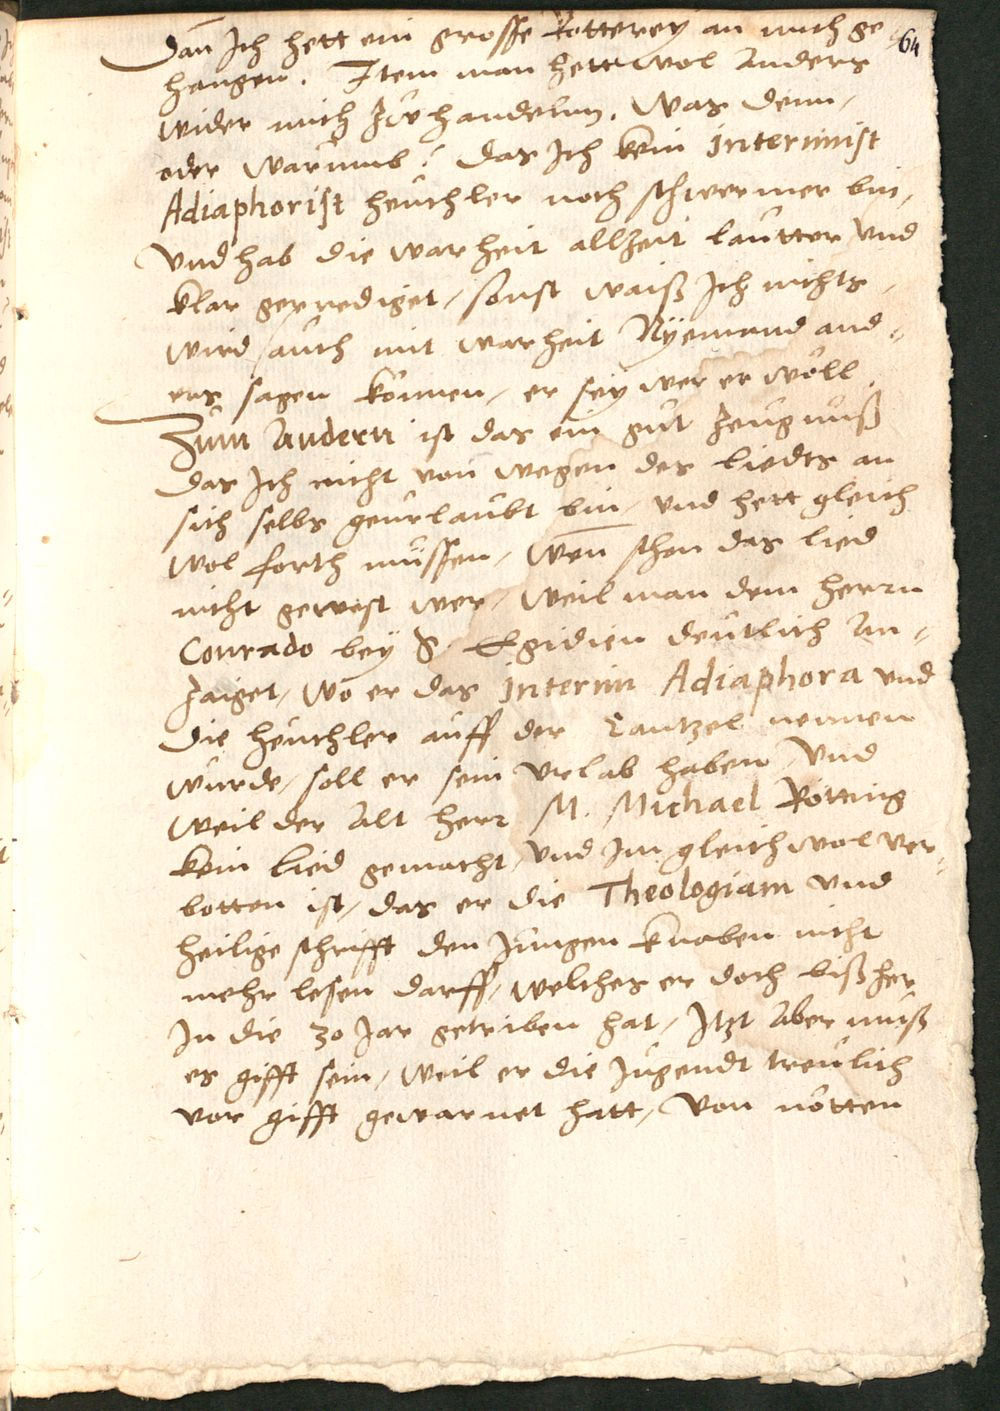 64
Dan̄ Ich hett ein grosse Rotterey an mich ge
hangen. Item man hett wol Anders
wider mich zu handelnn. Was denn /
oder warumb? Das Ich kein Interimist
Adiaphorist heuchler noch schwermer bin /
Vnd hab die warheit allzeit lautter vnd
klar geprediget / sonst waiß Ich nichts /
wird auch mit warheit Nyemand and=
ers sagen können / er sey wer er wöll.
Zum Andern ist das ein gut Zeugnuß
Das Ich nicht von wegen des liedts an
sich selbs geurlaubt bin / vnd hett gleich
wol forth müssen / wen̄ schon das lied
nicht gewest wer / weil man dem herrn
Conrado bey S. Egidien deutlich An=
zaiget / wo er das Interim Adiaphora vnd
die heuchler auff der Cantzel nennen
wurde / soll er sein vrlab haben / Vnd
weil der Alt herr M. Michael Rötting
kein lied gemacht / vnd Im gleichwol ver=
botten ist / das er die Theologiam vnd
heilige schrifft den Jungen knaben nicht
mehr lesen darff / welches er doch bißher
In die 30 Jar getriben hat / Itzt Aber muß
es gifft sein / weil er die Jugendt treulich
vor gifft gewarnet hatt / Von nötten